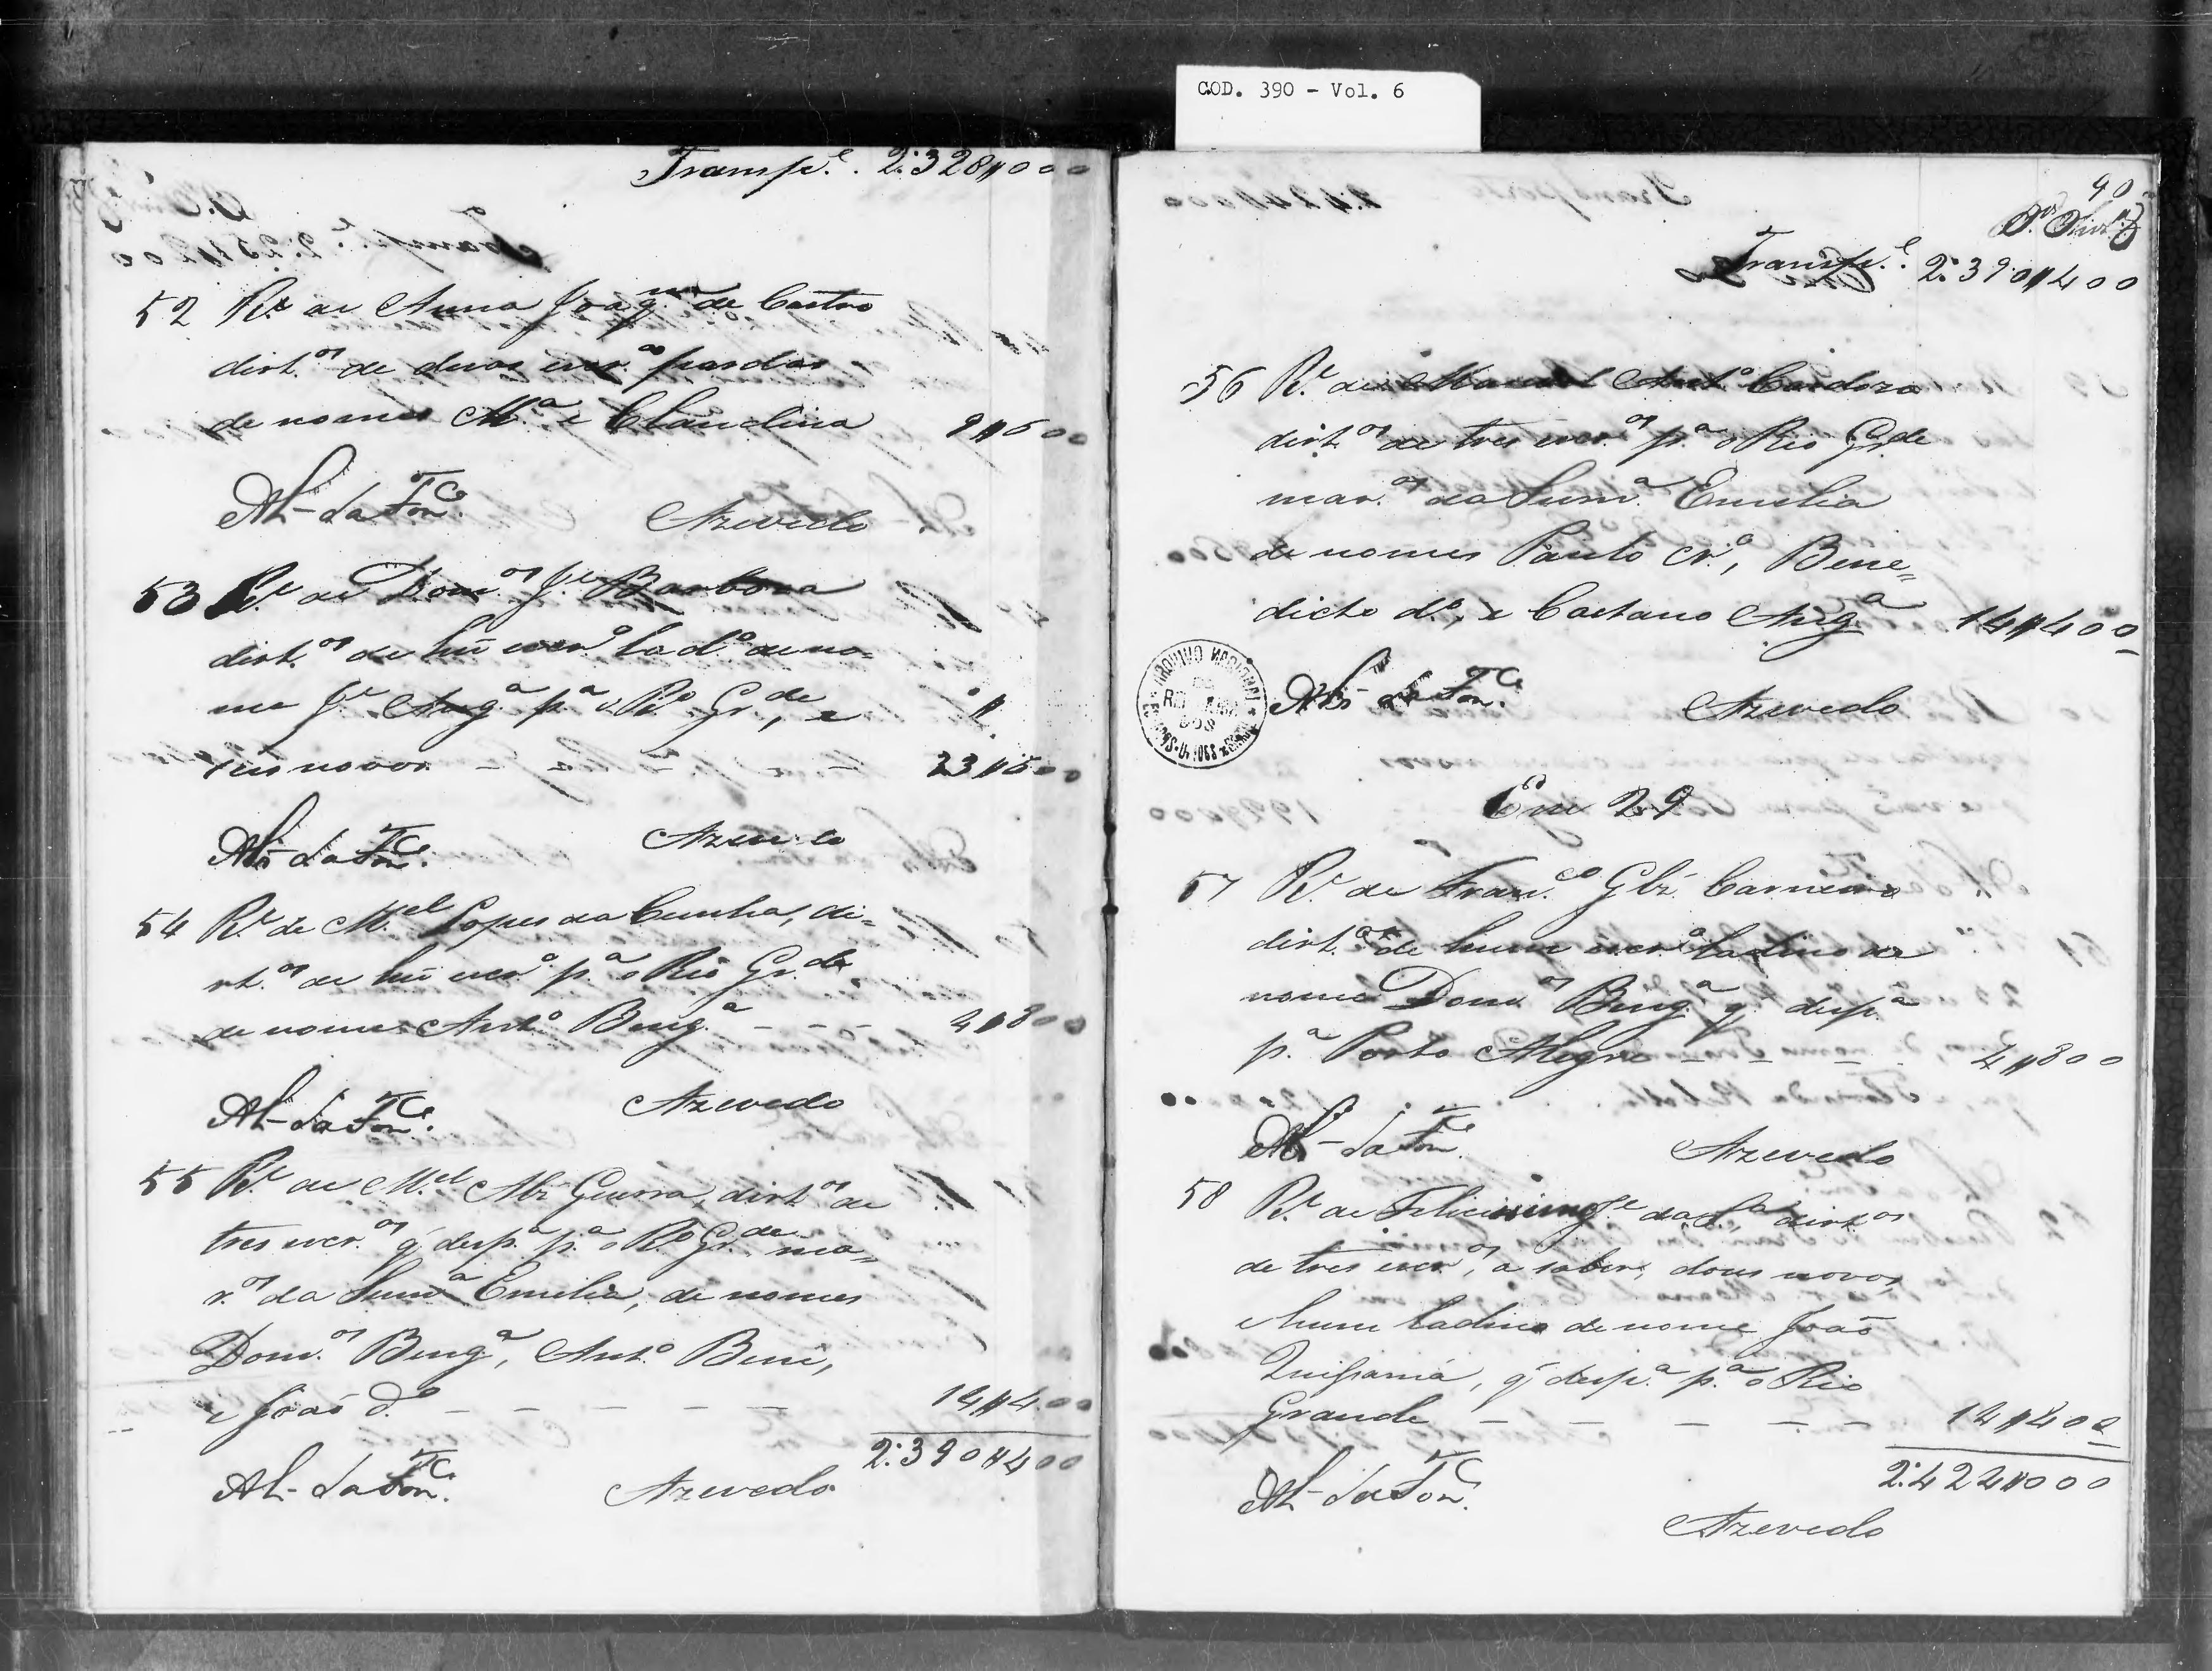 COD. 390 - Vol. 6
Transp.e 2:328$000
52 R.e de Anna Joaq.na de Castro
dirt.os de duas escr.as pardas
de nomes M.a e Claudina 9$600
Azevedo
53 R.e de Dom.os J.e Barboza
dirt.os de hũ escr.o lad.o de no=
me J.e Ang.a p.a o R.o Gr.de, e
seis novos 23$600
Azevedo
54 R.e de M.el Lopes da Cunha, di=
rt.os de hũ escr.o p.a o Rio Gr.de
de nome Ant.o Beng.a 4$800
Azevedo
55 R.e de M.el Alz Guerra, dirt.os de
tres escr.os q̃ desp.a p.a o R.o Gr.de ma=
r.os da Sum.a Emilia, de nomes
Dom.os Beng.a, Ant.o Beni,
e João d.o 14$400
2:390$400
Azevedo
90
Transp.e 2:390$400
56 R.e de Manoel Ant.o Cardozo
dirt.os de tres escr.os p.a o Rio Gr.de
mar.os da Sum.a Emilia
de nomes Paulo Cr.o, Bene=
dicto d.o, e Caetano Ang.a 14$400
Azevedo
Em 29
57 R.e de Fran.co Glz. Carneiro
dirt.os de hum escr.o ladino de
nome Dom.os Beng.a q̃ desp.a
p.a Porto Alegre 4$800
Azevedo
58 R.e de Felicissimo J.e da S.a dirt.os
de tres escr.os, a saber, dous novos,
e hum ladino de nome João
Quissamã, q̃ desp.a p.a o Rio
Grande 14$400
2:424$000
Azevedo